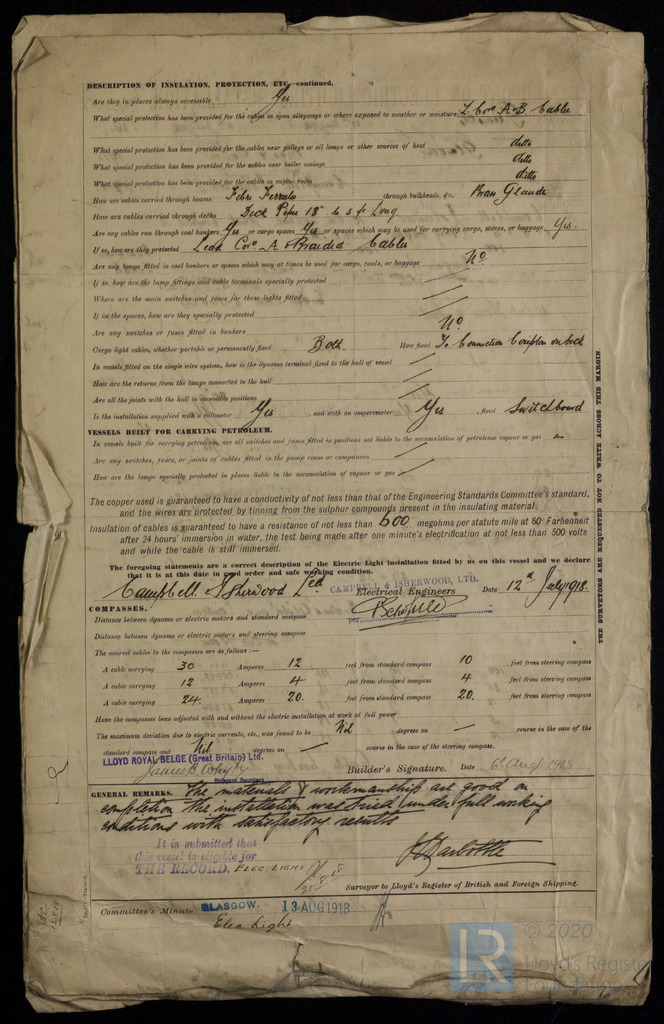 DESCRIPTION OF INSULATION, PROTECTION, ETC.—continued.
Are they in places always accessible Yes
What special protection has been provided for the cables in open alleyways or where exposed to weather or moisture L. Cov'd A & B Cables
What special protection has been provided for the cables near galleys or oil lamps or other sources of heat ditto
What special protection has been provided for the cables near boiler casings ditto
What special protection has been provided for the cables in engine room ditto
How are cables carried through beams Fibre Ferrules through bulkheads, &c. Brass Glands
How are cables carried through decks Deck Pipes 18" to 5 ft Long
Are any cables run through coal bunkers Yes or cargo spaces Yes or spaces which may be used for carrying cargo, stores, or baggage Yes.
If so, how are they protected Lead Cov'd A & Braided Cables
Are any lamps fitted in coal bunkers or spaces which may at times be used for cargo, coals, or baggage No
If so, how are the lamp fittings and cable terminals specially protected
Where are the main switches and fuses for these lights fitted
If in the spaces, how are they specially protected
Are any switches or fuses fitted in bunkers No
Cargo light cables, whether portable or permanently fixed Both How fixed To Connection on deck
In vessels fitted on the single wire system, how is the dynamo terminal fixed to the hull of vessel
How are the returns from the lamps connected to the hull
Are all the joints with the hull in accessible positions
Is the installation supplied with a voltmeter Yes , and with an amperemeter Yes , fixed Switchboard
VESSELS BUILT FOR CARRYING PETROLEUM.
In vessels built for carrying petroleum, are all switches and fuses fitted in positions not liable to the accumulation of petroleum vapour or gas
Are any switches, fuses, or joints of cables fitted in the pump room or companion
How are the lamps specially protected in places liable to the accumulation of vapour or gas
THE SURVEYORS ARE REQUESTED NOT TO WRITE ACROSS THIS MARGIN
The copper used is guaranteed to have a conductivity of not less than that of the Engineering Standards Committee's standard,
and the wires are protected by tinning from the sulphur compounds present in the insulating material.
Insulation of cables is guaranteed to have a resistance of not less than 600 megohms per statute mile at 60° Farhenheit
after 24 hours' immersion in water, the test being made after one minute's electrification at not less than 500 volts
and while the cable is still immersed.
The foregoing statements are a correct description of the Electric Light installation fitted by us on this vessel and we declare
that it is at this date in good order and safe working condition.
Campbell & Isherwood Ltd CAMPBELL & ISHERWOOD, LTD. Electrical Engineers Date 12th July 1918.
per
COMPASSES.
Distance between dynamo or electric motors and standard compass
Distance between dynamo or electric motors and steering compass
The nearest cables to the compasses are as follows:—
A cable carrying 30 Amperes 12 feet from standard compass 10 feet from steering compass
A cable carrying 12 Amperes 4 feet from standard compass 4 feet from steering compass
A cable carrying 24. Amperes 20. feet from standard compass 20. feet from steering compass
Have the compasses been adjusted with and without the electric installation at work at full power
The maximum deviation due to electric currents, etc., was found to be Nil degrees on — course in the case of the
standard compass and Nil degrees on — course in the case of the steering compass.
LLOYD ROYAL BELGE (Great Britain) Ltd.
Builder's Signature. Date 6th Augt 1918
GENERAL REMARKS. The materials & workmanship are good on
completion the installation was tried under full working
conditions with satisfactory results
It is submitted that
this vessel is eligible for
THE RECORD. ELEC. LIGHT
Surveyor to Lloyd's Register of British and Foreign Shipping.
Committee's Minute GLASGOW. 13 AUG 1918
Elec Light
LR
© 2020
Lloyd's Register
Foundation